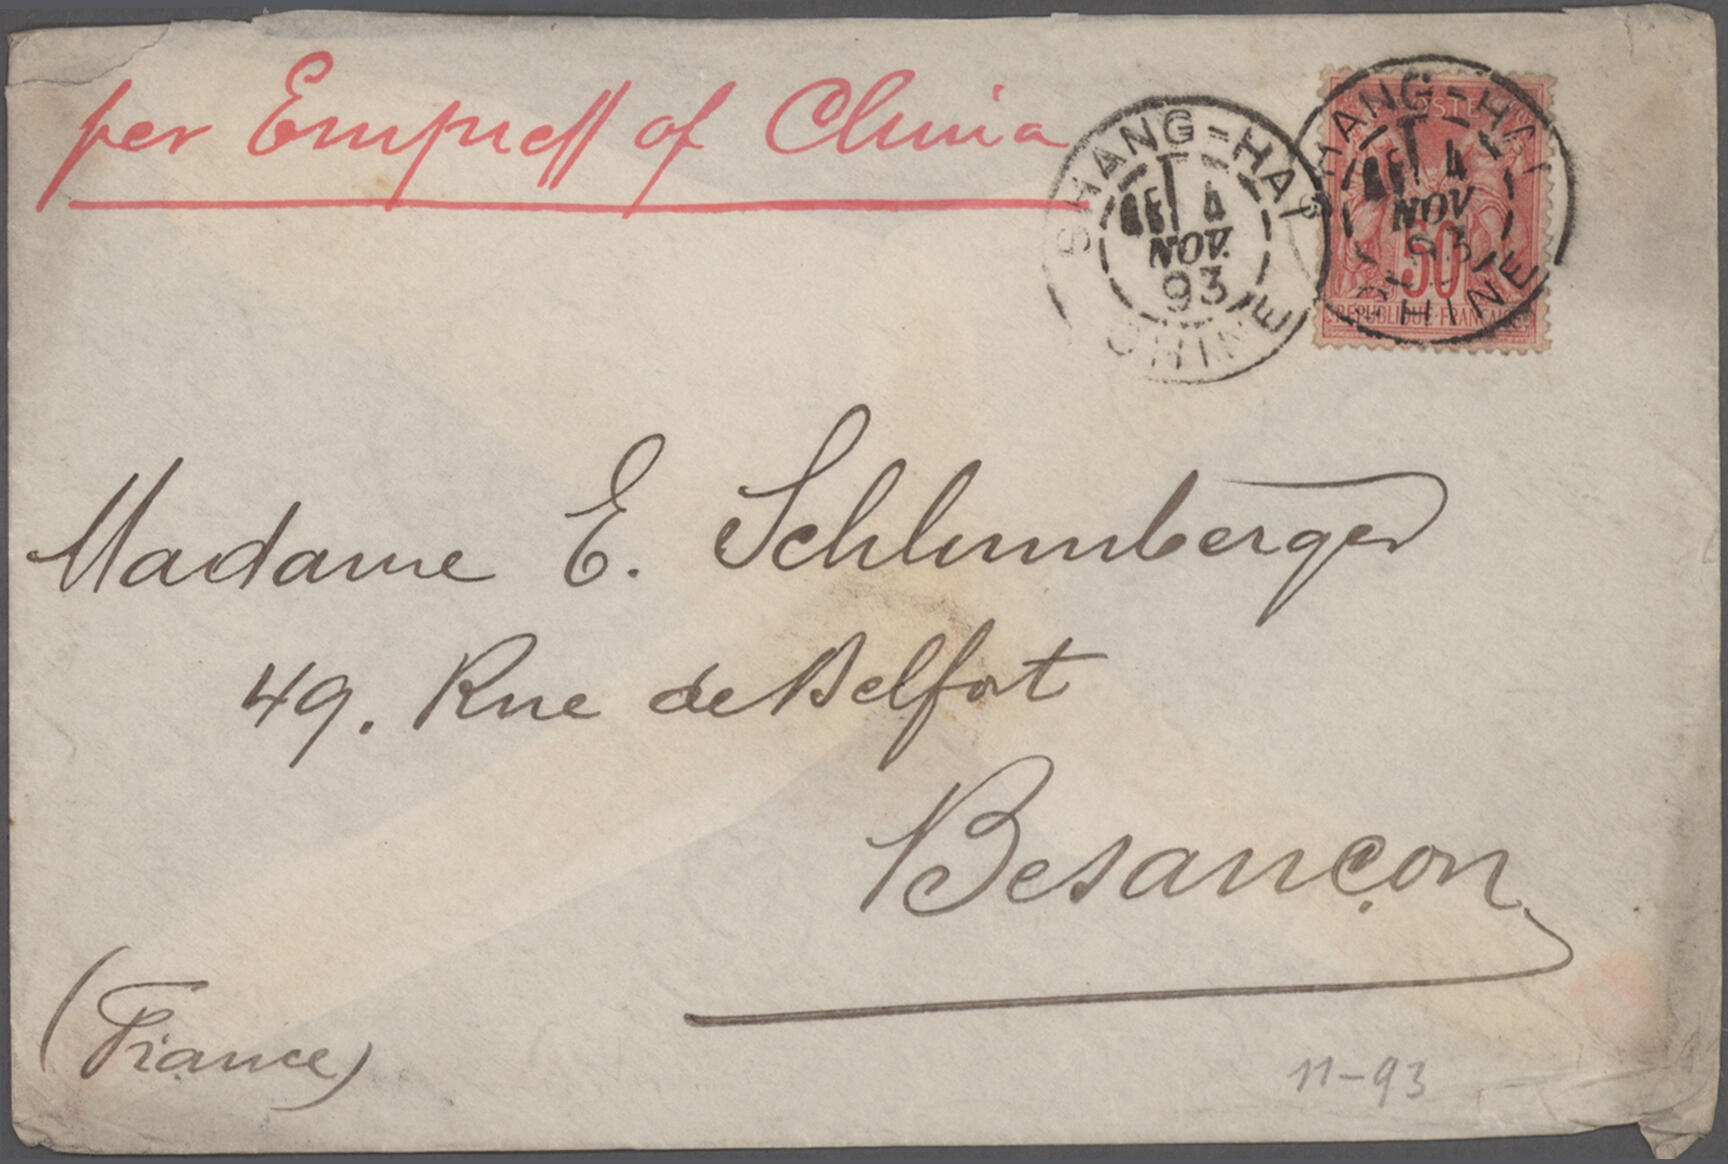 per Empress of China
SHANG-HAI
4
NOV.
93
CHINE
SHANG-HAI
4
NOV
93
CHINE
50
REPUBLIQUE FRANCAISE
Madame E. Schlumberger
49. Rue de Belfort
Besançon
(France)
11-93